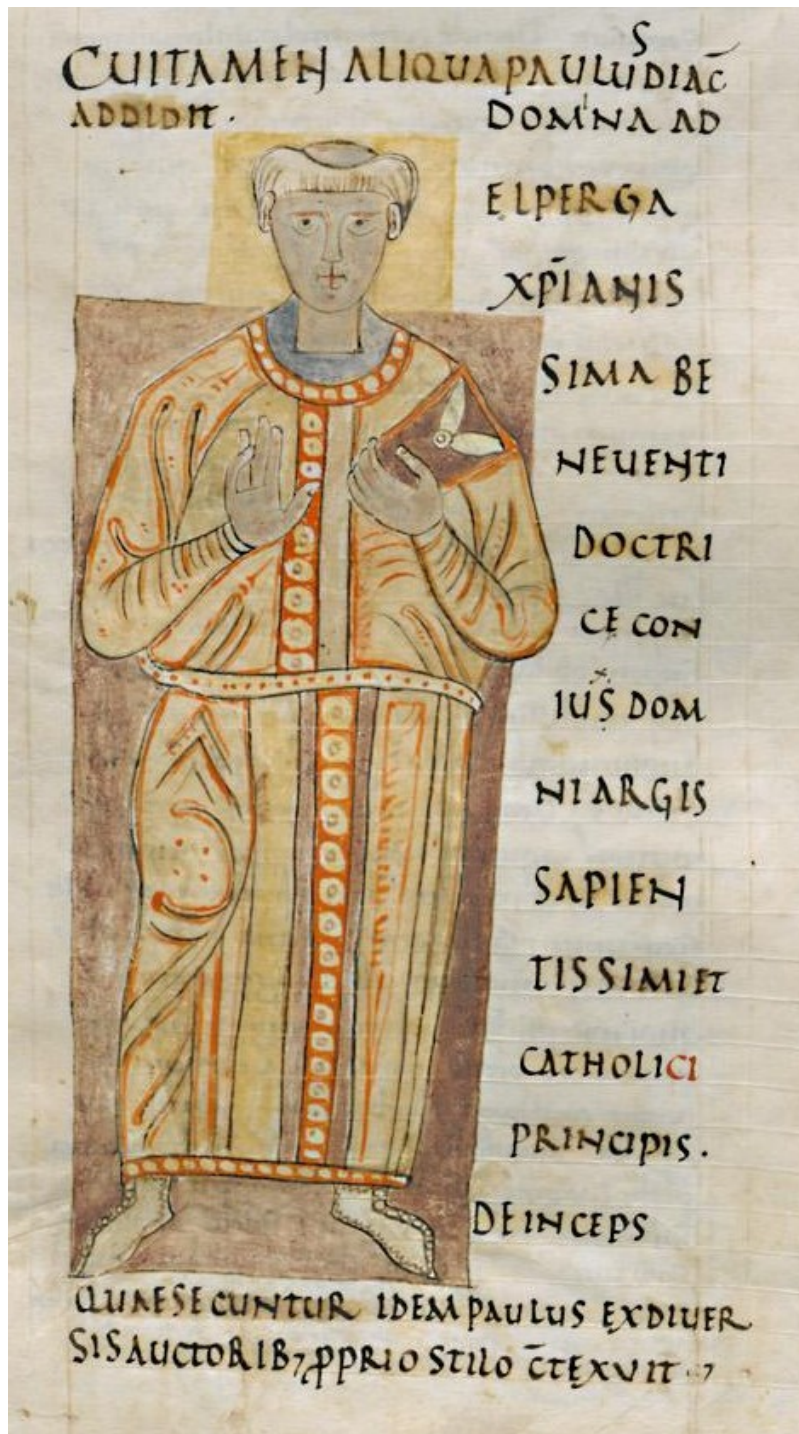 CUITAMEN ALIQUA PAULUS DIAC̄
ADDIDIT. DOMNA AD
ELPERGA
XP̄IANIS
SIMA BE
NEUENTI
DOCTRI
CE CON
IUS DOM
NI ARGIS
SAPIEN
TISSIMI ET
CATHOLICI
PRINCIPIS.
DEINCEPS
QUAE SECUNTUR IDEM PAULUS EX DIUER
SIS AUCTORIB7 ꝓPRIO STILO C̄TEXUIT.7